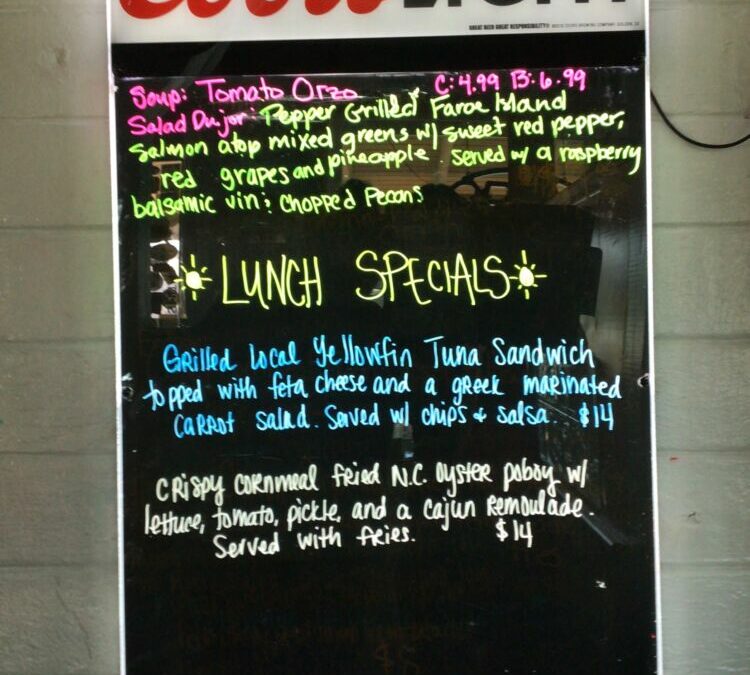 Coors LIGHT
GREAT BEER GREAT RESPONSIBILITY®
Soup: Tomato Orzo C: 4.99 B: 6.99
Salad Dujor: Pepper Grilled Faroe Island
Salmon atop mixed greens w/ sweet red pepper,
red grapes and pineapple. served w/ a raspberry
balsamic vin; chopped pecans
LUNCH SPECIALS
Grilled Local Yellowfin Tuna Sandwich
topped with feta cheese and a greek marinated
carrot salad. Served w/ chips & salsa. $14
Crispy cornmeal fried N.C. oyster poboy w/
lettuce, tomato, pickle, and a cajun remoulade.
Served with fries. $14